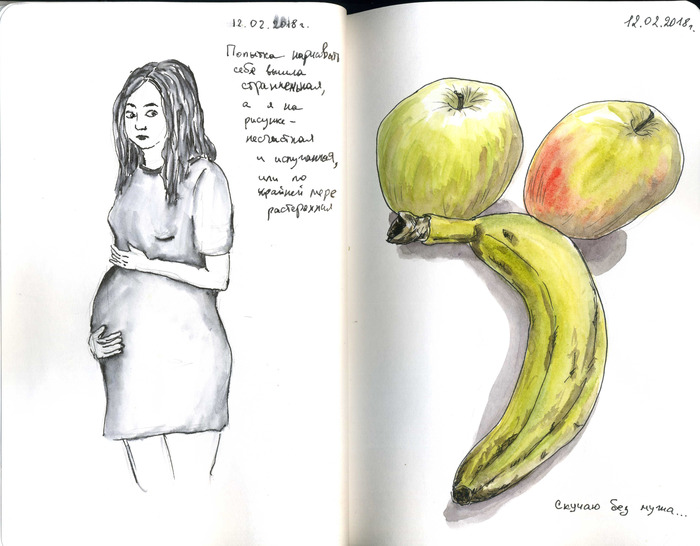 12.02.2018г.
Попытка нарисовать
себя вышла
странненькая,
а я на
рисунке -
несчастная
и испуганная,
или по
крайней мере
растерянная
12.02.2018г.
Скучаю без мужа...